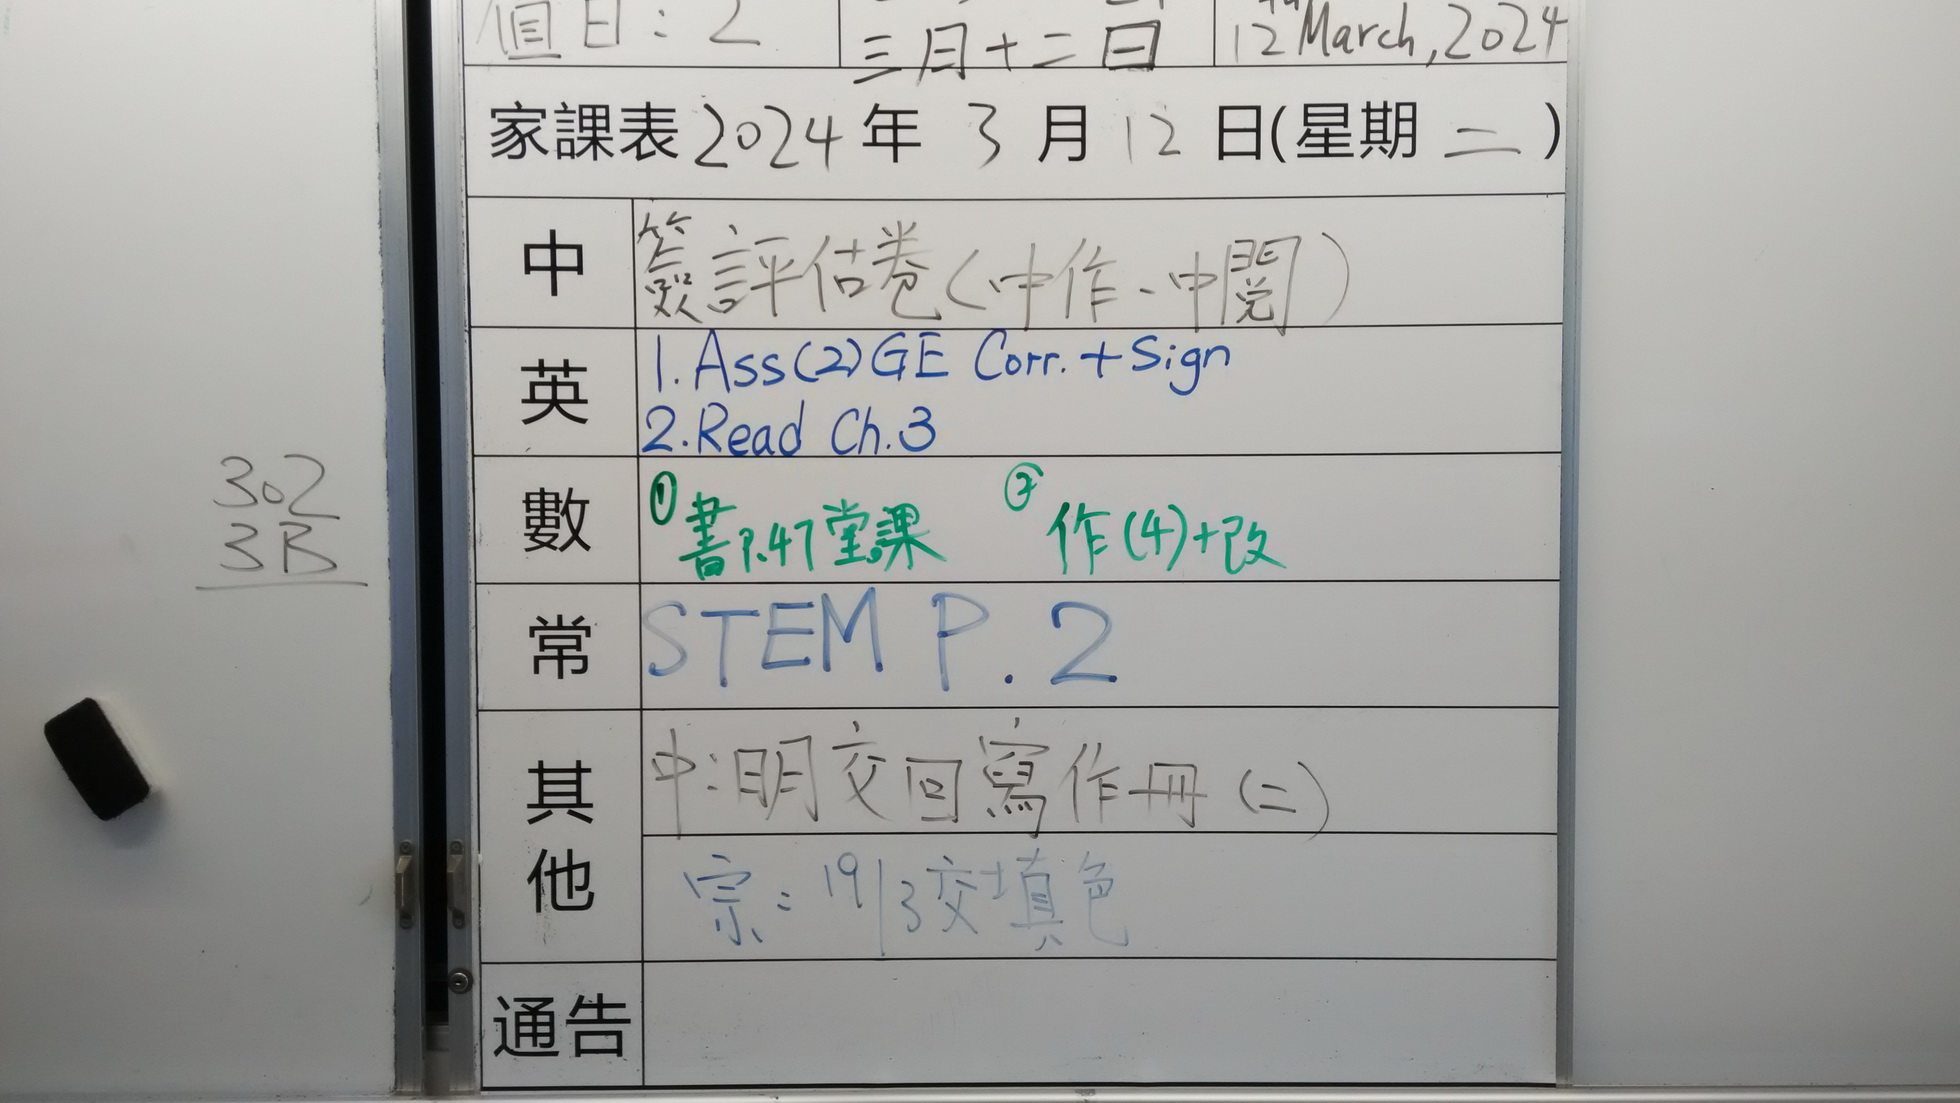 值日：2
三月十二日
12th March, 2024
家課表 2024 年 3 月 12 日(星期 二 )
中 簽評估卷(中作、中閱)
英 1. Ass(2) GE Corr. + Sign
2. Read Ch.3
數 ① 書P.47堂課 ② 作(4)+改
常 STEM P.2
其他 中：明交回寫作冊(二)
宗：19/3交填色
通告
302
3B